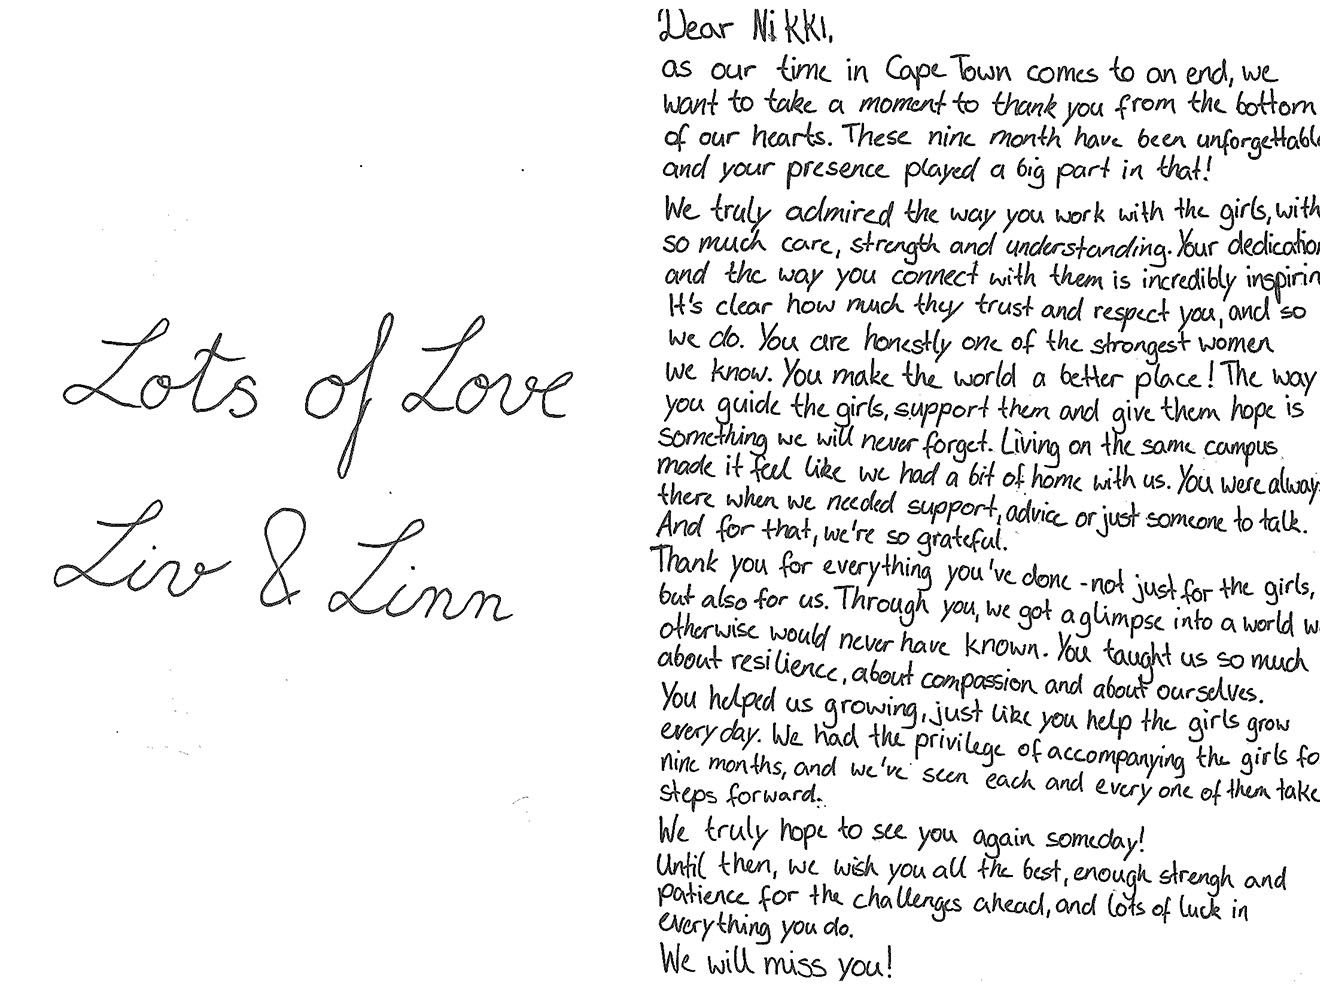 Lots of Love
Liv & Linn
Dear Nikki,
as our time in Cape Town comes to an end, we
want to take a moment to thank you from the bottom
of our hearts. These nine month have been unforgettable
and your presence played a big part in that!
We truly admired the way you work with the girls, with
so much care, strength and understanding. Your dedication
and the way you connect with them is incredibly inspirin
It's clear how much they trust and respect you, and so
we do. You are honestly one of the strongest women
we know. You make the world a better place! The way
you guide the girls, support them and give them hope is
something we will never forget. Living on the same campus
made it feel like we had a bit of home with us. You were alway
there when we needed support, advice or just someone to talk.
And for that, we're so grateful.
Thank you for everything you've done - not just for the girls,
but also for us. Through you, we got a glimpse into a world w
otherwise would never have known. You taught us so much
about resilience, about compassion and about ourselves.
You helped us growing, just like you help the girls grow
every day. We had the privilege of accompanying the girls fo
nine months, and we've seen each and every one of them take
steps forward.
We truly hope to see you again someday!
Until then, we wish you all the best, enough strengh and
patience for the challenges ahead, and lots of luck in
everything you do.
We will miss you!